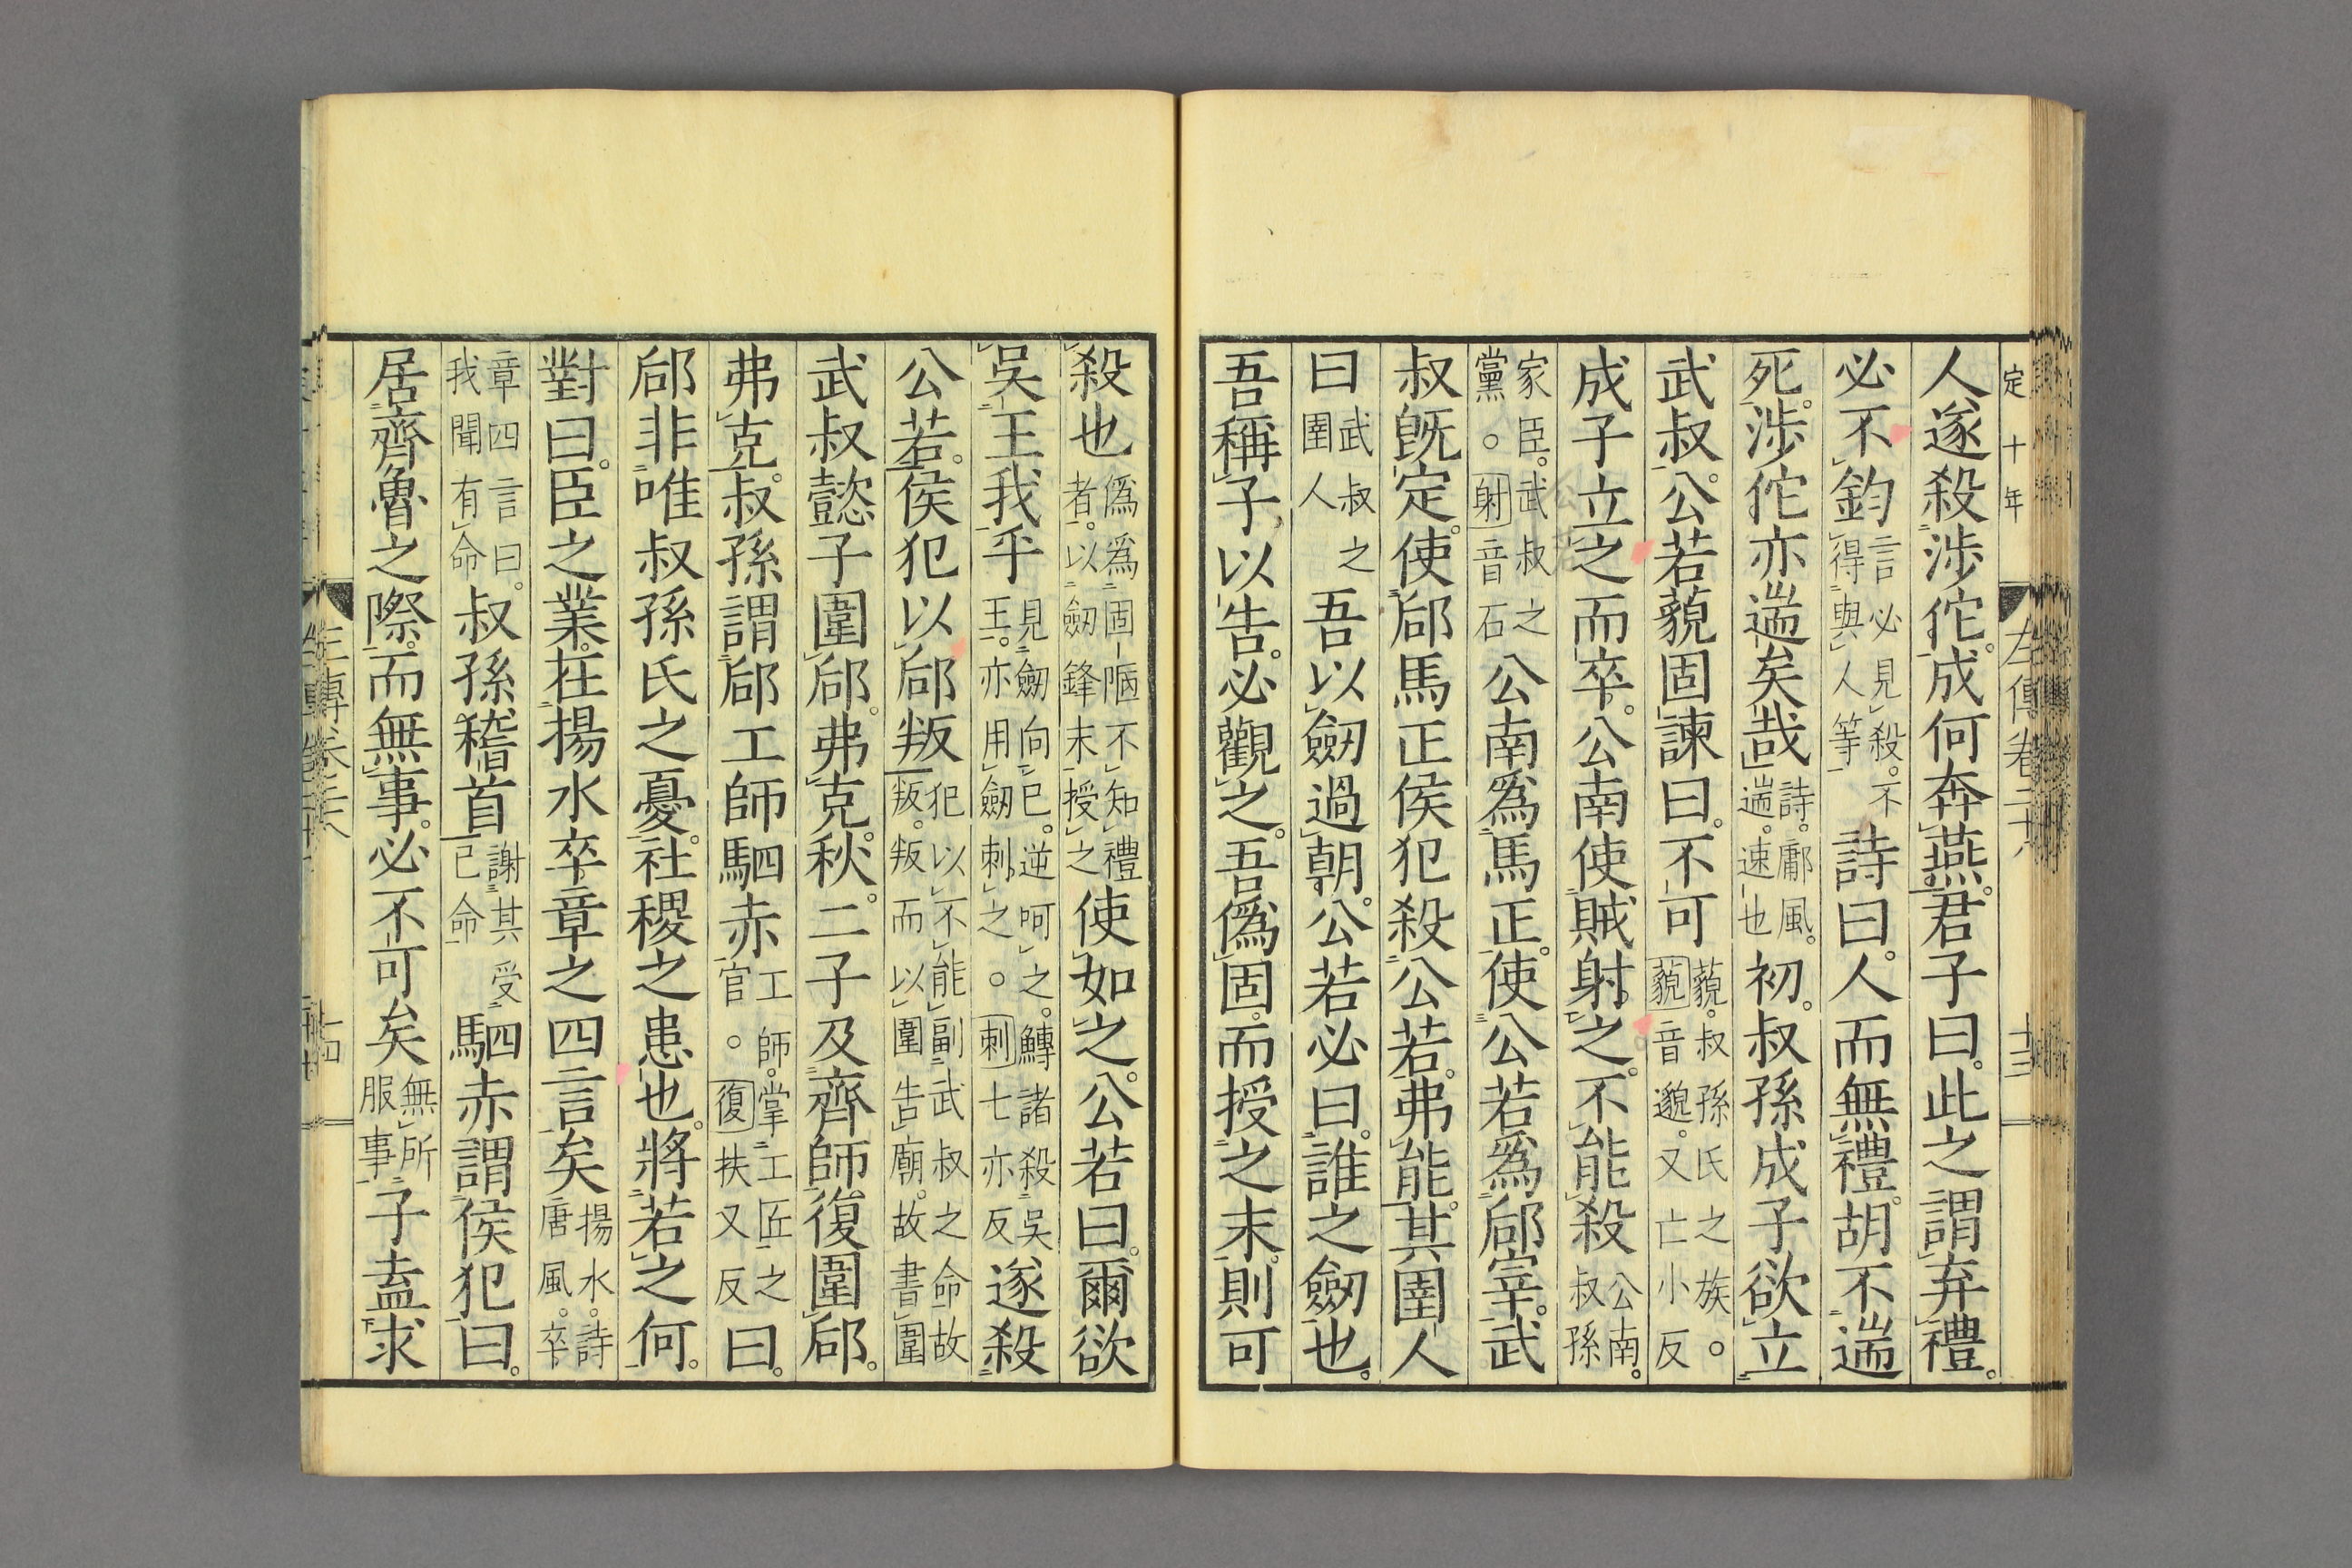 定十年
左傳卷二十八
十三
人遂殺涉佗。成何奔燕。君子曰。此之謂弃禮。
必不鈞言必見殺。不得與人等詩曰。人而無禮。胡不遄
死。涉佗亦遄矣哉詩。鄘風。遄。速也初。叔孫成子欲立
武叔。公若藐固諫曰。不可藐。叔孫氏之族。○藐音邈。又亡小反
成子立之而卒。公南使賊射之。不能殺公南。叔孫
家臣。武叔之黨。○射音石公南爲馬正。使公若爲郈宰。武
叔旣定。使郈馬正侯犯殺公若。弗能。其圉人
曰武叔之圉人吾以劒過朝。公若必曰。誰之劒也。
吾稱子以告。必觀之。吾僞固。而授之末。則可
殺也僞爲固陋不知禮者。以劒鋒末授之使如之。公若曰。爾欲
吳王我乎見劒向己。逆呵之。鱄諸殺吳王。亦用劒刺之。○刺七亦反遂殺
公若。侯犯以郈叛犯以不能副武叔之命故叛。叛而以圍告廟。故書圍
武叔懿子圍郈。弗克。秋。二子及齊師復圍郈。
弗克。叔孫謂郈工師駟赤工師。掌工匠之官。○復扶又反曰。
郈非唯叔孫氏之憂。社稷之患也。將若之何。
對曰。臣之業。在揚水卒章之四言矣揚水。詩唐風。卒
章四言曰。我聞有命叔孫稽首謝其受己命駟赤謂侯犯曰。
居齊魯之際。而無事。必不可矣無所服事子盍求